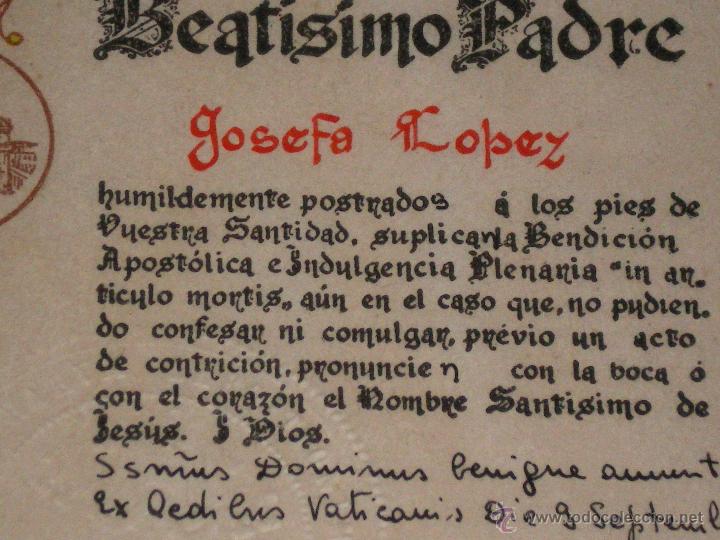 Beatísimo Padre
Josefa Lopez
humildemente postrados á los pies de
Vuestra Santidad, suplican la Bendición
Apostólica e Indulgencia Plenaria "in ar-
ticulo mortis„ aún en el caso que, no pudien-
do confesar ni comulgar, prévio un acto
de contrición, pronuncien con la boca ó
con el corazón el Nombre Santisimo de
Jesús. I Dios.
Ssmus Dominus benigne annuit
Ex Aedibus Vaticanis Die 9 Septemb
todocoleccion
www.todocoleccion.net